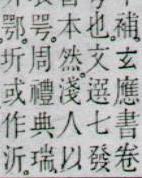 補。玄應書卷
也。文選七發
本然。淺人以
咢。周禮典瑞
鄂。圻或作沂。